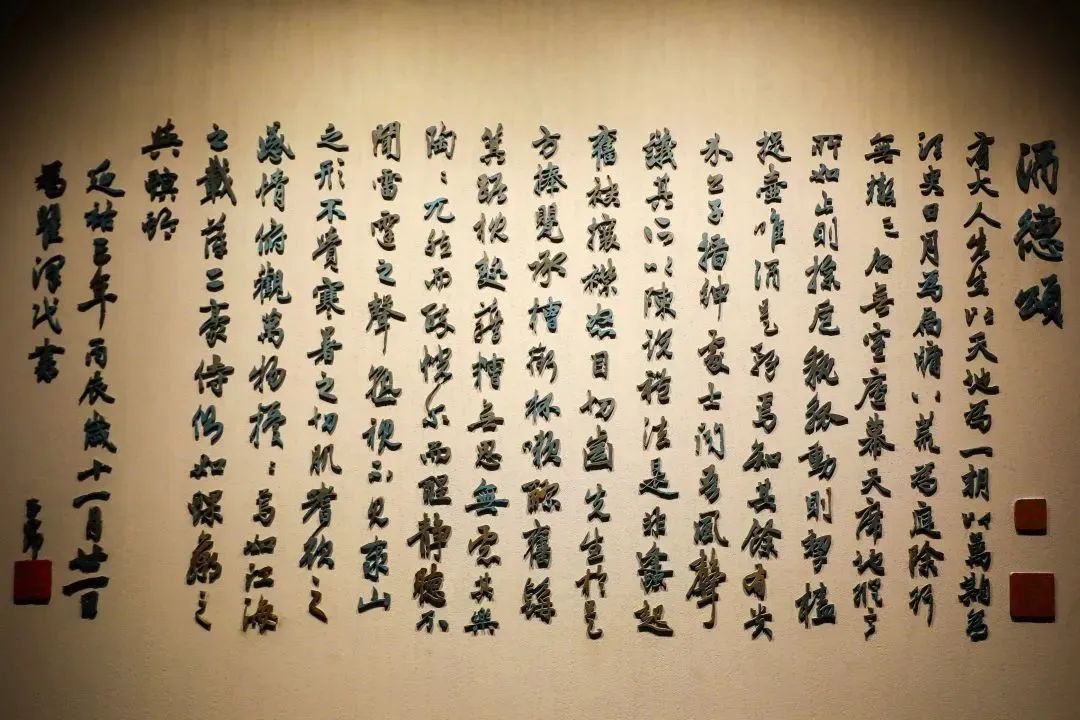 酒德頌
有大人先生以天地為一朝以萬期為
須臾日月為扃牖八荒為庭除行
無轍迹居無室廬幕天席地縱意
所如止則操卮執瓢動則挈榼
提壺唯酒是務焉知其餘有貴
介公子搢紳處士聞吾風聲
議其所以陳說禮法是非鋒起
奮袂攘襟怒目切齒先生於是
方捧甖承槽銜杯漱醪奮髯
箕踞枕麴藉糟無思無慮其樂
陶陶兀然而醉恍尔而醒靜聽不
聞雷霆之聲孰視不見泰山
之形不覺寒暑之切肌嗜欲之
感情俯觀萬物擾擾焉如江海
之載萍二豪侍側如蜾蠃之
與螟蛉
延祐三年丙辰歲十一月廿一日
為瞿澤民書
子昂